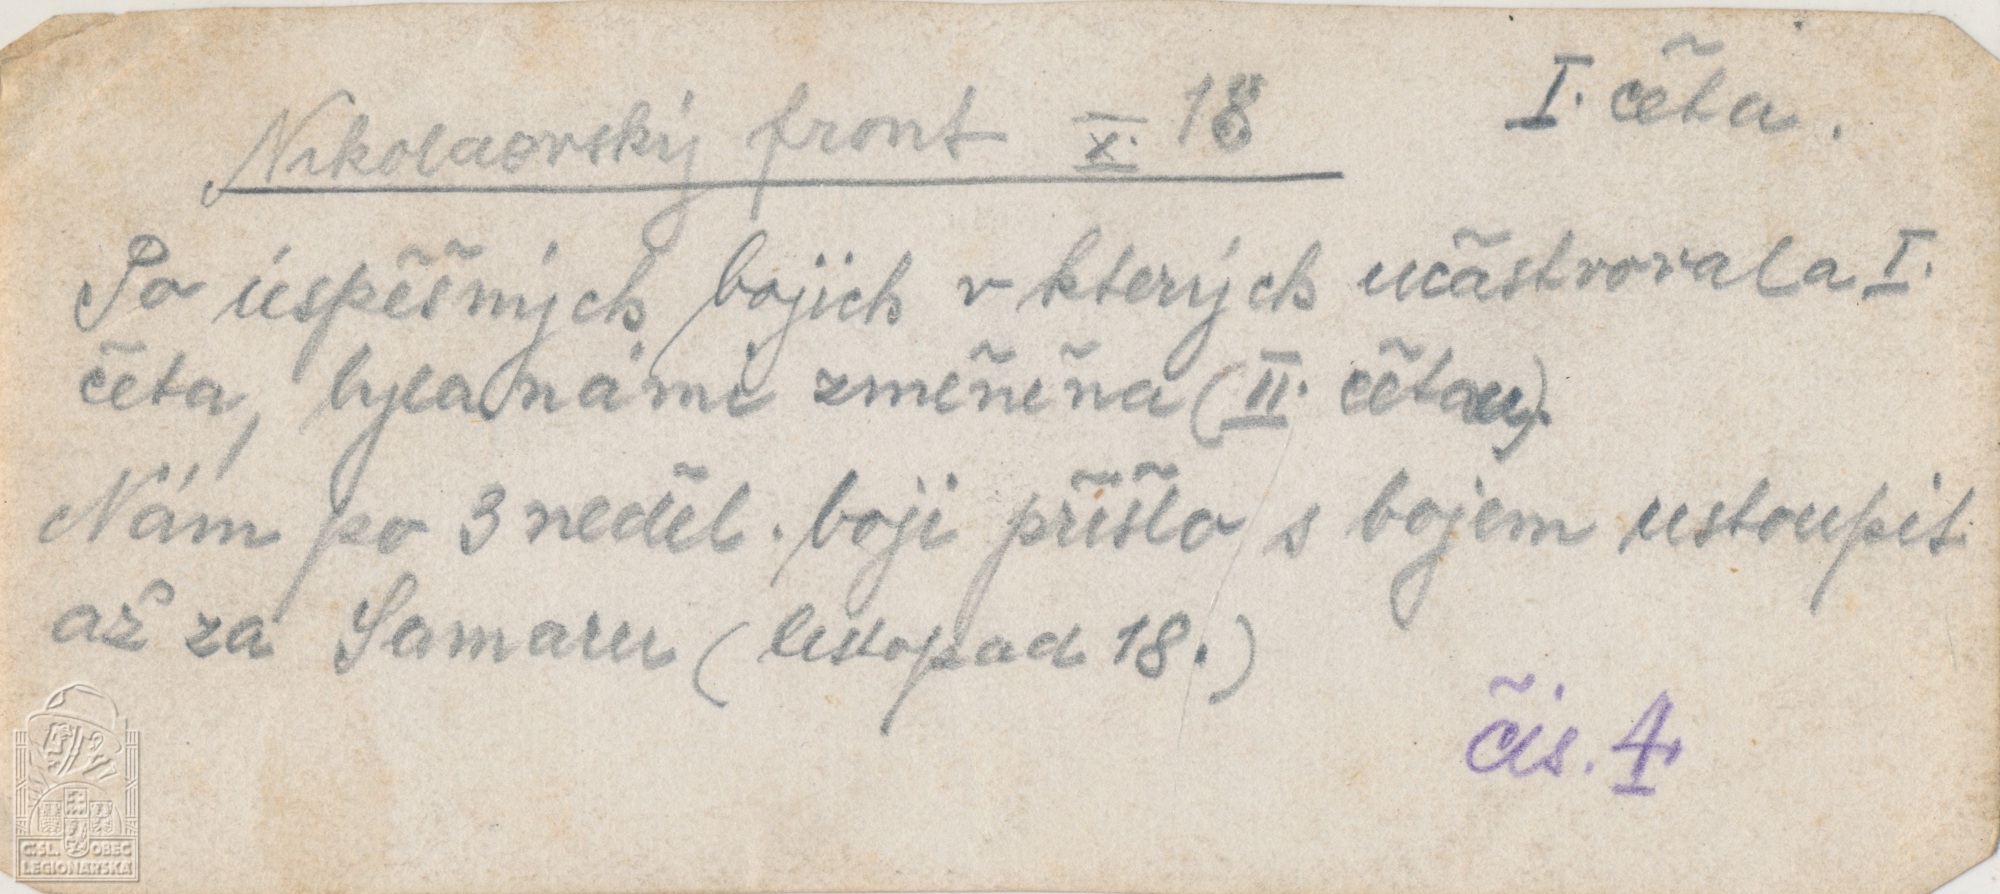 I. četa.
Nikolaovský front X. 18
Po úspěšných bojích v kterých učástvovala I.
četa, byla námi změněna (II. četou).
Nám po 3 neděl. boji přišlo s bojem ustoupit
až za Samaru (listopad 18.)
čís. 4
Č.SL. OBEC
LEGIONÁŘSKÁ